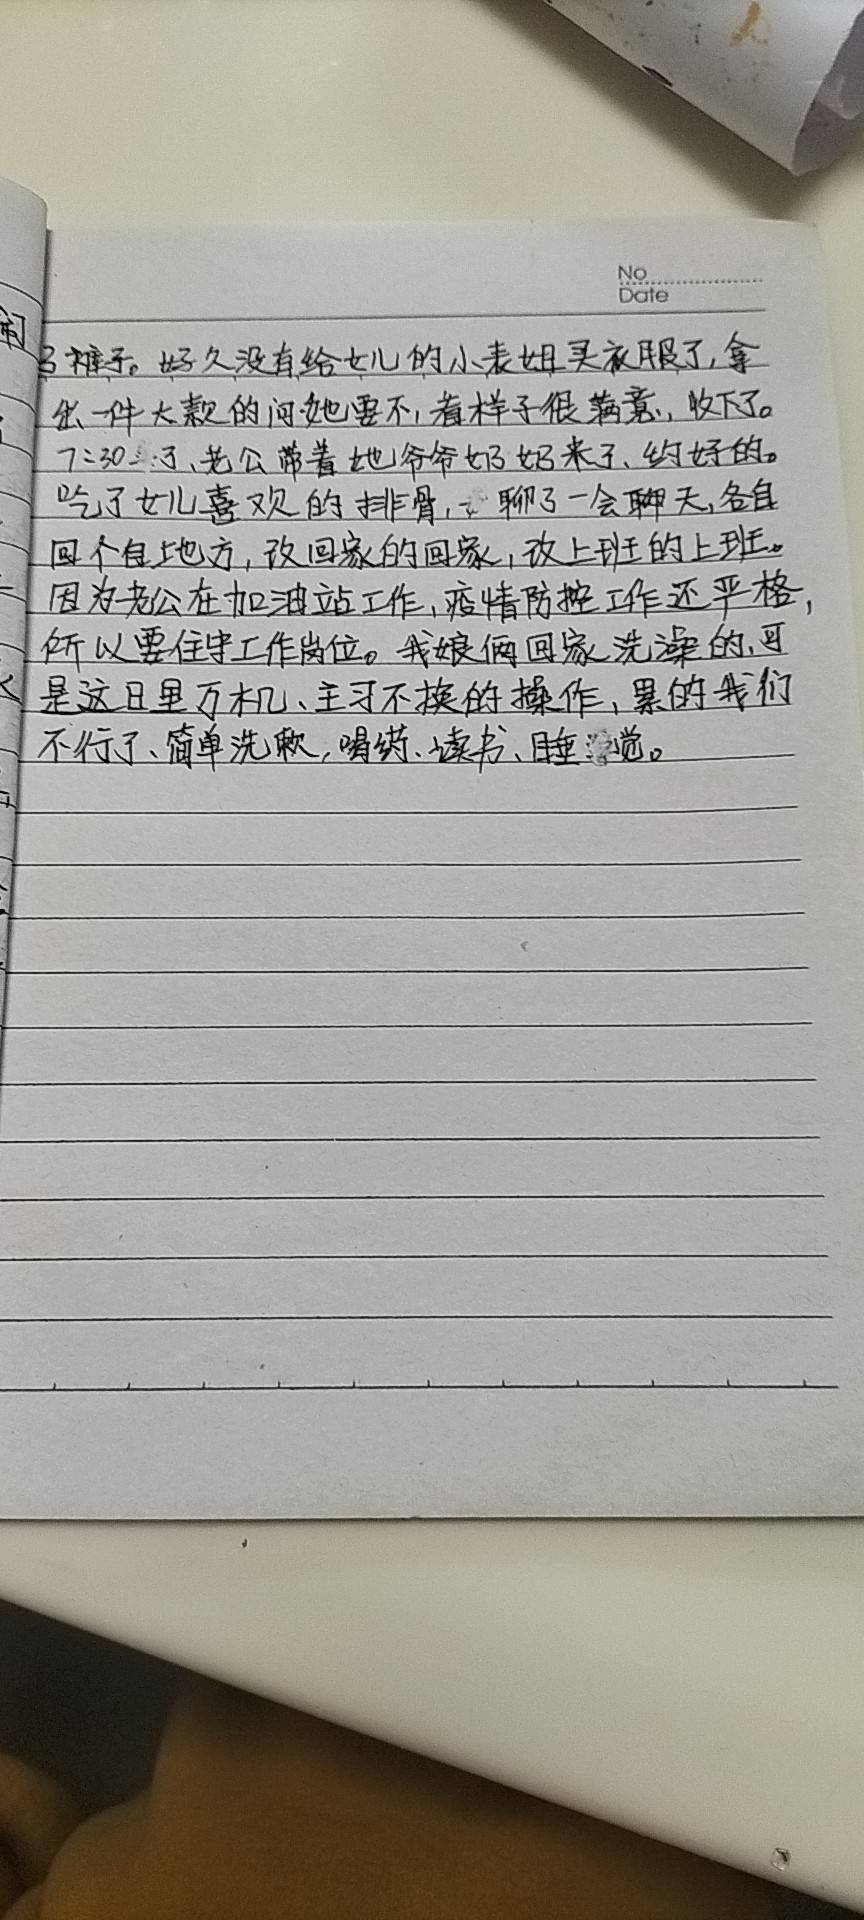 No
Date
了裤子。好久没有给女儿的小表姐买衣服了,拿
出一件大款的问她要不,看样子很满意,收下了。
7:30了、老公带着她爷爷奶奶来了、约好的。
吃了女儿喜欢的排骨,聊了一会聊天,各自
回个自地方,改回家的回家,改上班的上班。
因为老公在加油站工作,疫情防控工作还严格,
所以要住守工作岗位。我娘俩回家洗澡的,可
是这日里万机、主习不换的操作,累的我们
不行了、简单洗漱,喝药、读书、睡觉。